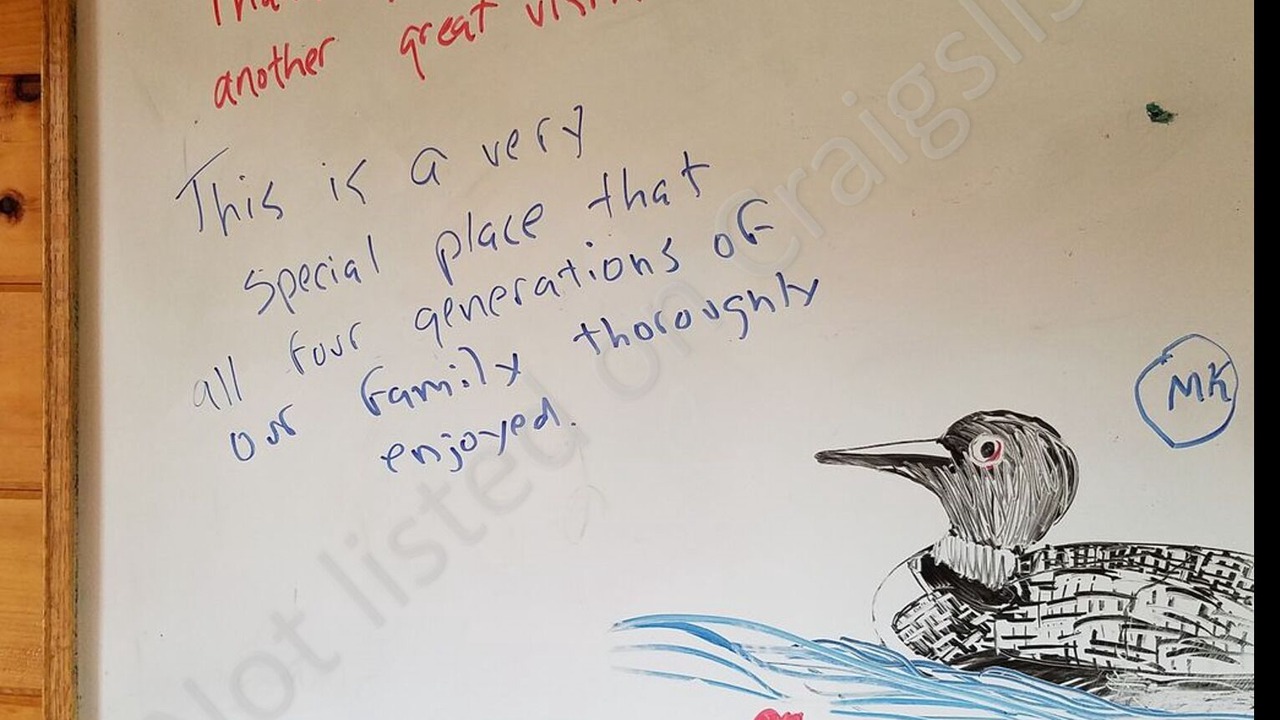 another great
This is a very
special place that
all four generations of
our family thoroughly
enjoyed.
MK
Not listed on Craigslist